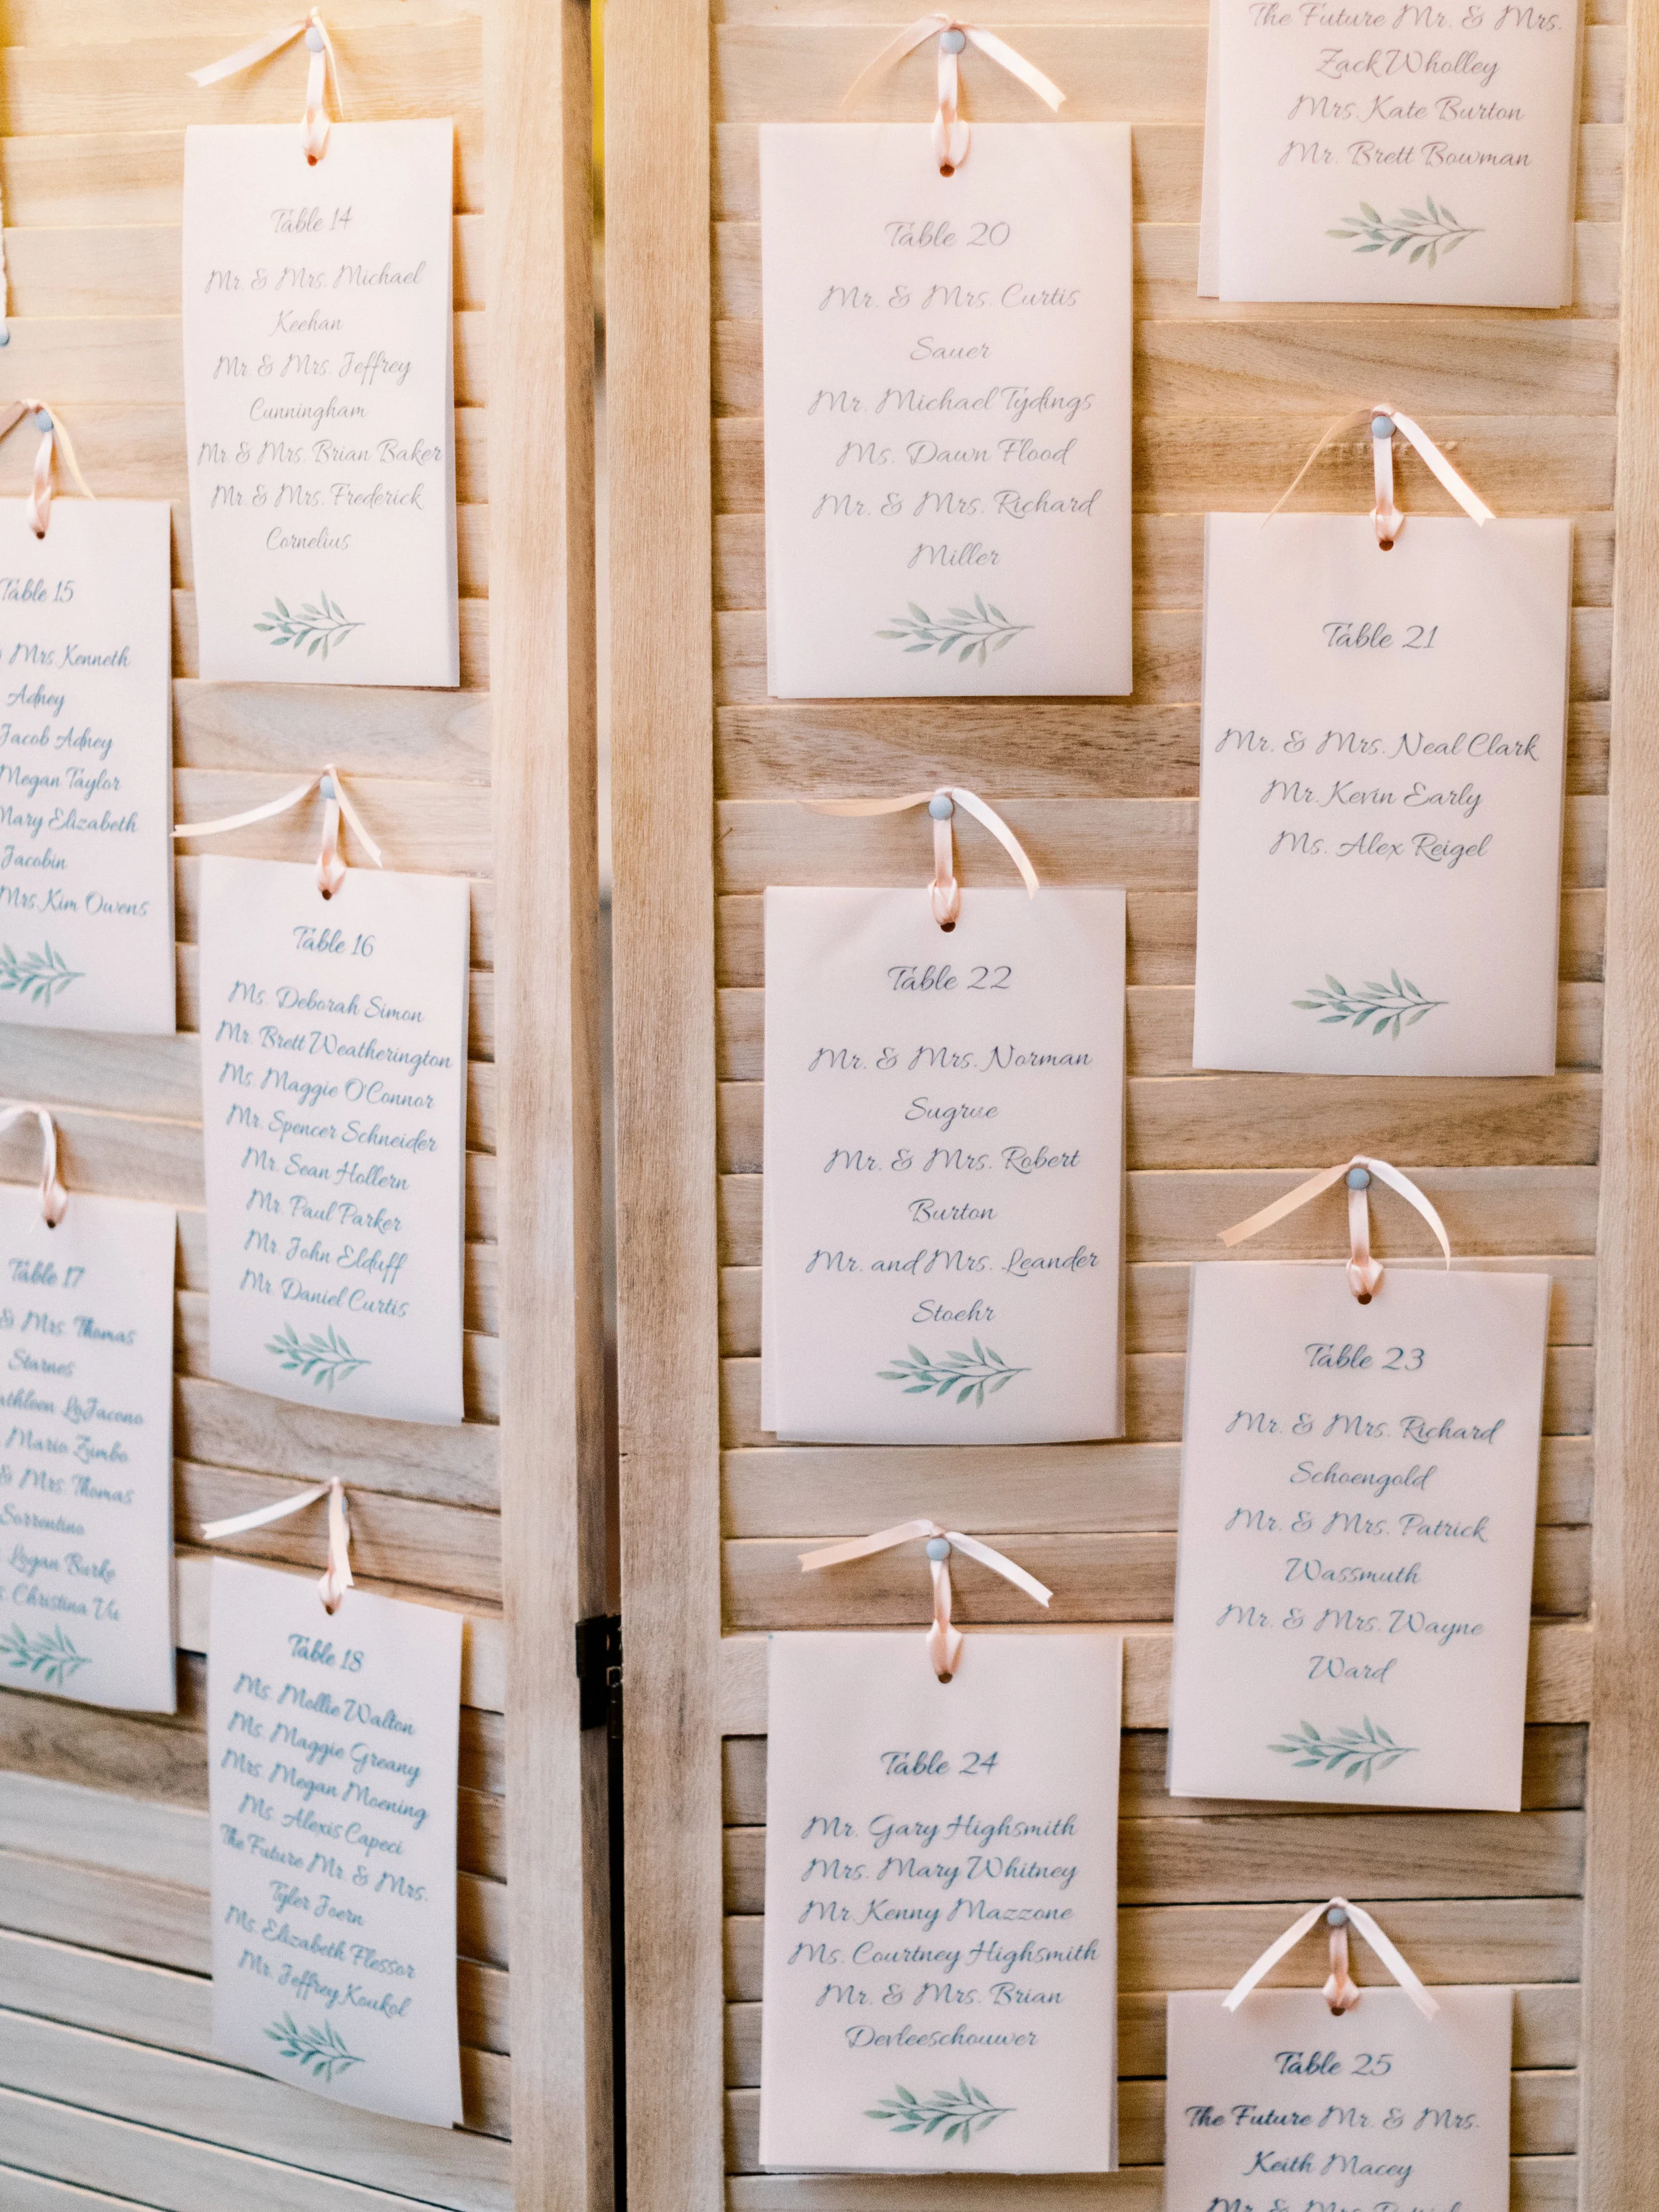 Table 14
Mr. & Mrs. Michael
Keehan
Mr. & Mrs. Jeffrey
Cunningham
Mr. & Mrs. Brian Baker
Mr. & Mrs. Frederick
Cornelius
Table 15
Mrs. Kenneth
Adney
Jacob Adney
Megan Taylor
Mary Elizabeth
Jacobin
Mrs. Kim Owens
Table 16
Ms. Deborah Simon
Mr. Brett Weatherington
Ms. Maggie O'Connor
Mr. Spencer Schneider
Mr. Sean Hollern
Mr. Paul Parker
Mr. John Elduff
Mr. Daniel Curtis
Table 17
& Mrs. Thomas
Starnes
LoJacono
Mario Zumbo
& Mrs. Thomas
Sorrentino
Logan Burke
Christina Vu
Table 18
Ms. Mollie Walton
Ms. Maggie Greany
Mrs. Megan Moening
Ms. Alexis Capeci
The Future Mr. & Mrs.
Tyler Joern
Ms. Elizabeth Flessor
Mr. Jeffrey Koukol
The Future Mr. & Mrs.
Zack Wholley
Mrs. Kate Burton
Mr. Brett Bowman
Table 20
Mr. & Mrs. Curtis
Sauer
Mr. Michael Tydings
Ms. Dawn Flood
Mr. & Mrs. Richard
Miller
Table 21
Mr. & Mrs. Neal Clark
Mr. Kevin Early
Ms. Alex Reigel
Table 22
Mr. & Mrs. Norman
Sugrue
Mr. & Mrs. Robert
Burton
Mr. and Mrs. Leander
Stoehr
Table 23
Mr. & Mrs. Richard
Schoengold
Mr. & Mrs. Patrick
Wassmuth
Mr. & Mrs. Wayne
Ward
Table 24
Mr. Gary Highsmith
Mrs. Mary Whitney
Mr. Kenny Mazzone
Ms. Courtney Highsmith
Mr. & Mrs. Brian
Devleeschouwer
Table 25
The Future Mr. & Mrs.
Keith Macey
Mr. & Mrs.